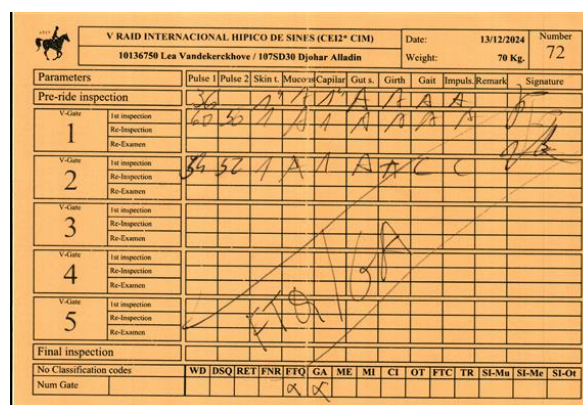 V RAID INTERNACIONAL HIPICO DE SINES (CEI2* CIM)
Date: 13/12/2024
Number
10136750 Lea Vandekerckhove / 107SD30 Djohar Alladin
Weight: 70 Kg.
72
Parameters Pulse 1 Pulse 2 Skin t. Mucous Capilar Gut s. Girth Gait Impuls. Remark Signature
Pre-ride inspection 36 1" 1 1" A A A A
V-Gate 1 1st inspection 60 50 1 A 1 A A A A
Re-Inspection
Re-Examen
V-Gate 2 1st inspection 54 52 1 A 1 A A C C
Re-Inspection
Re-Examen
V-Gate 3 1st inspection
Re-Inspection
Re-Examen
V-Gate 4 1st inspection
Re-Inspection
Re-Examen
V-Gate 5 1st inspection
Re-Inspection
Re-Examen
FTQ/GA
Final inspection
No Classification codes WD DSQ RET FNR FTQ GA ME MI CI OT FTC TR SI-Mu SI-Me SI-Ot
Num Gate